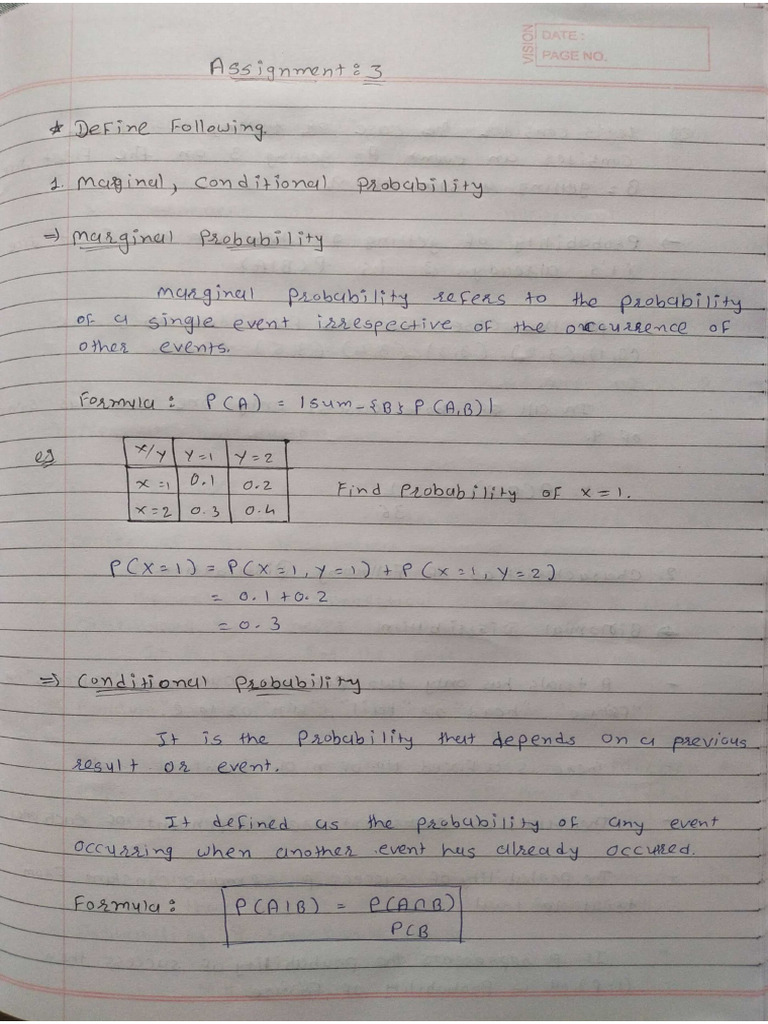 VISION
DATE :
PAGE NO.
Assignment : 3
* Define Following.
1. Marginal, Conditional Probability
⇒ Marginal Probability
Marginal Probability refers to the probability
of a single event irrespective of the occurrence of
other events.
Formula : P(A) = |sum-{B} P(A,B)|
eg
X/Y Y=1 Y=2
X=1 0.1 0.2
X=2 0.3 0.4
Find Probability of X=1.
P(X=1) = P(X=1, Y=1) + P(X=1, Y=2)
= 0.1 + 0.2
= 0.3
⇒ Conditional Probability
It is the Probability that depends on a previous
result or event.
It defined as the probability of any event
occurring when another event has already occured.
Formula : P(A|B) = P(A∩B)
P(B